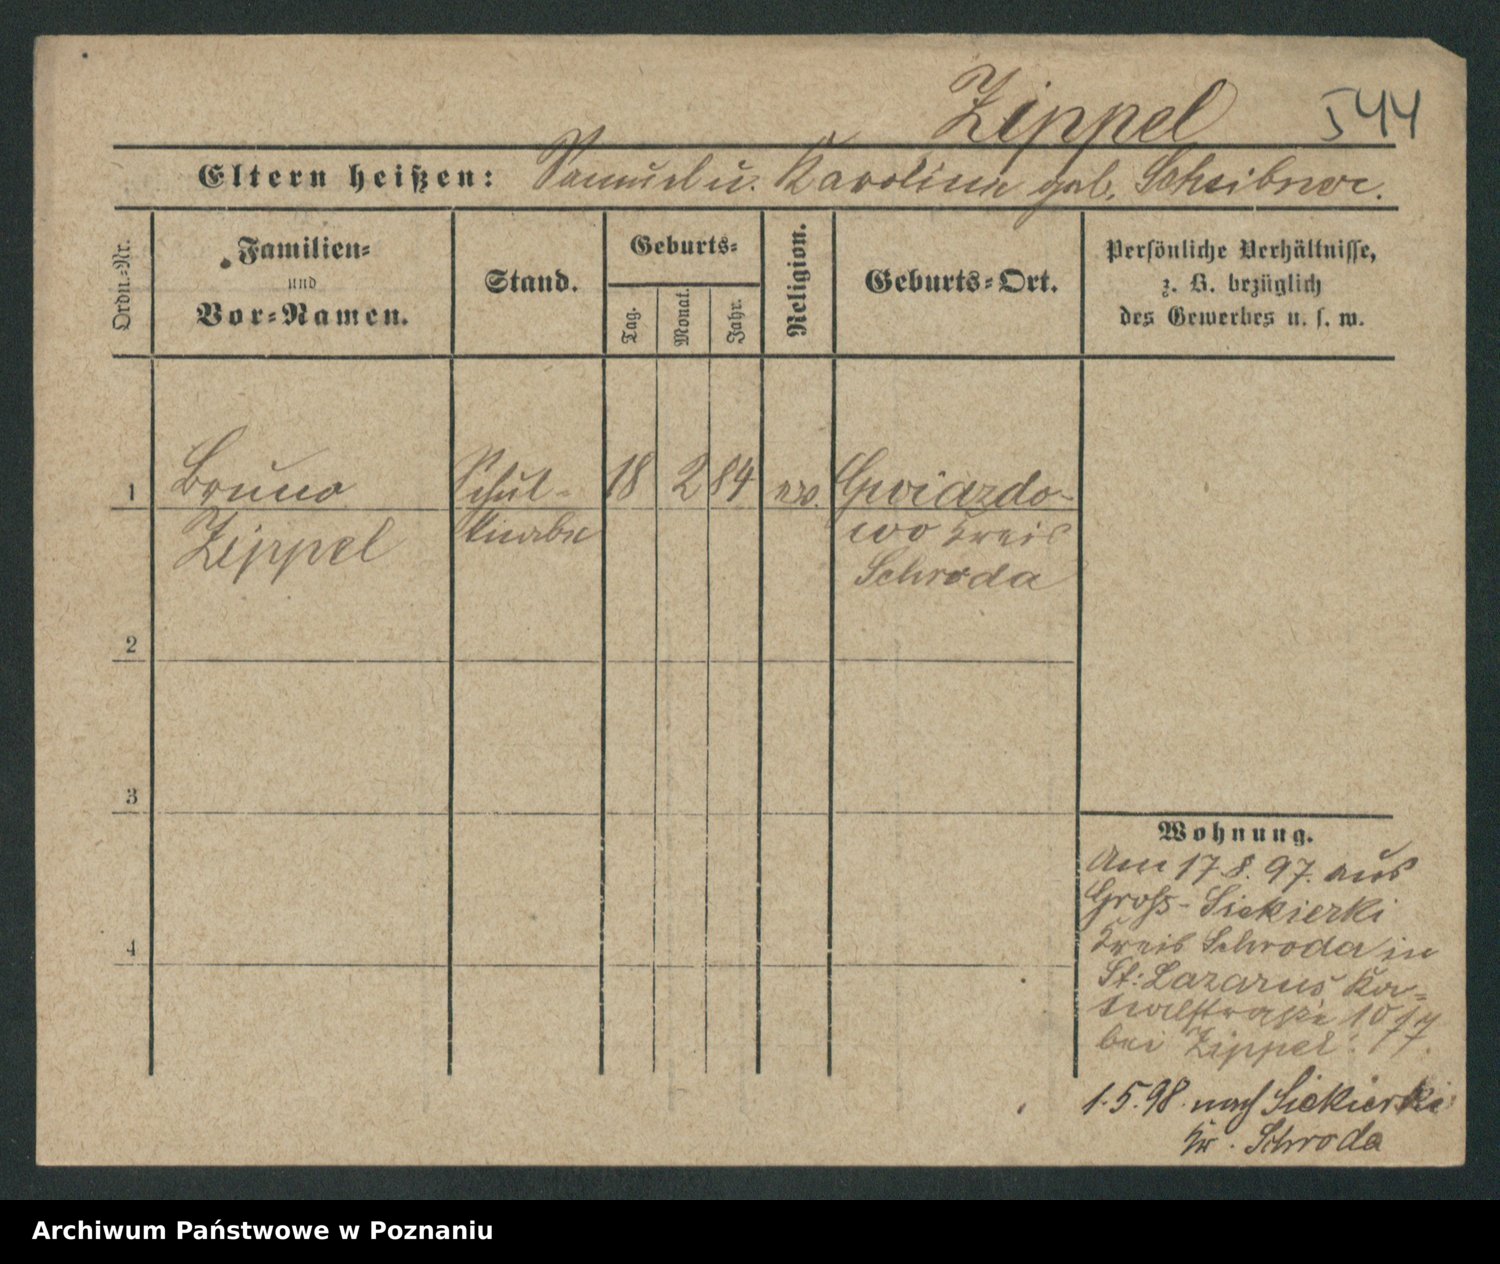 Zippel 544
Eltern heißen: Samuel u. Karoline geb. Scheibner.
Ordn.-Nr.
Familien-
und
Vor-Namen.
Stand.
Geburts-
Tag.
Monat.
Jahr.
Religion.
Geburts-Ort.
Persönliche Verhältnisse,
z. B. bezüglich
des Gewerbes u. s. w.
1 Bruno Schul- 18 2 84 ev. Gwiazdo-
Zippel knabe wo Kreis
Schroda
2
3
Wohnung.
Am 17.8.97. aus
Groß-Siekierki
4 Kreis Schroda in
St: Lazarus Ka-
nalstraße 10
bei Zippel.
1.5.98. nach Siekierki
Kr. Schroda
Archiwum Państwowe w Poznaniu